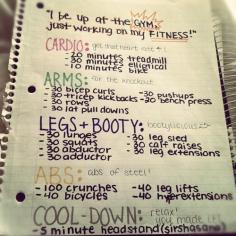 "I be up at the GYM,
just working on my FITNESS!"
CARDIO: get that heart rate
-20 minutes treadmill
-30 minutes elliptical
-10 minutes bike
ARMS: for the knockout
-30 bicep curls -30 pushups
-30 tricep kickbacks -20 bench press
-30 rows
-30 lat pull downs
LEGS + BOOTY: bootylicious
-30 lunges -30 leg sled
-30 squats -30 calf raises
-30 abductor -30 leg extensions
-30 adductor
ABS: abs of steel!
-100 crunches -40 leg lifts
-40 bicycles -40 hyperextensions
COOL-DOWN: relax! you made it!
-5 minute headstand (sirshasana)